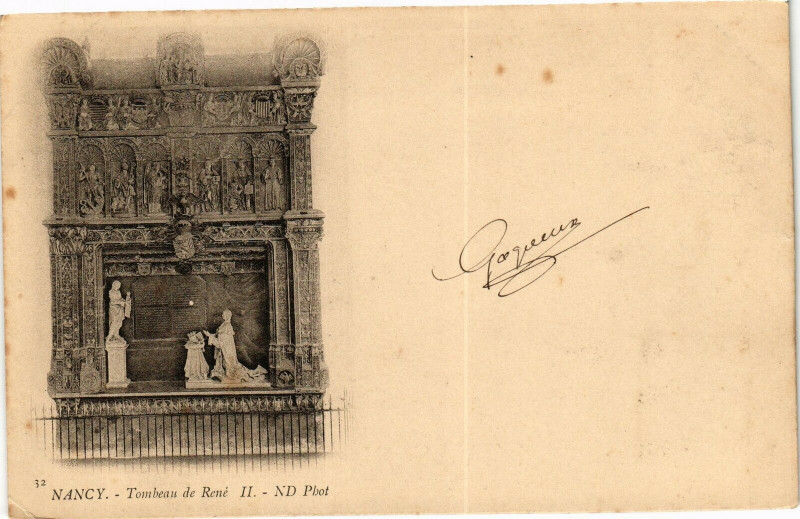 32
NANCY. - Tombeau de René II. - ND Phot